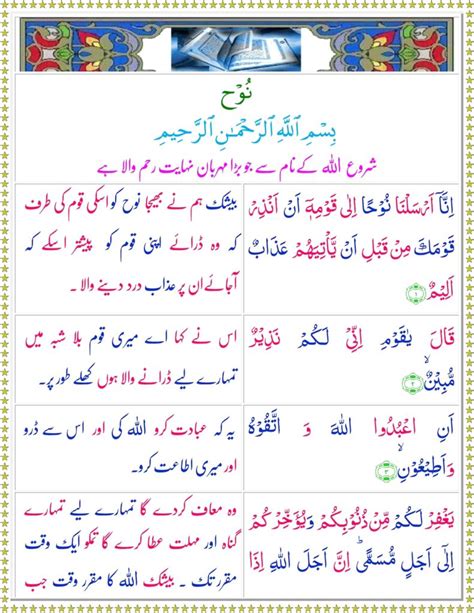 نُوۡح
بِسۡمِ اللّٰهِ الرَّحۡمٰنِ الرَّحِيۡمِ
شروع اللہ کے نام سے جو بڑا مہربان نہایت رحم والا ہے
اِنَّاۤ اَرۡسَلۡنَا نُوۡحًا اِلٰى قَوۡمِهٖۤ اَنۡ اَنۡذِرۡ
قَوۡمَكَ مِنۡ قَبۡلِ اَنۡ يَّاۡتِيَهُمۡ عَذَابٌ
اَلِيۡمٌ ۱
بیشک ہم نے بھیجا نوح کو اسکی قوم کی طرف
کہ وہ ڈرائے اپنی قوم کو پیشتر اسکے کہ
آجائے ان پر عذاب درد دینے والا ۔
قَالَ يٰقَوۡمِ اِنِّىۡ لَكُمۡ نَذِيۡرٌ
مُّبِيۡنٌ ۙ ۲
اس نے کہا اے میری قوم بلا شبہ میں
تمہارے لیے ڈرانے والا ہوں کھلے طور پر۔
اَنِ اعۡبُدُوا اللّٰهَ وَ اتَّقُوۡهُ
وَاَطِيۡعُوۡنِ ۙ ۳
یہ کہ عبادت کرو اللہ کی اور اس سے ڈرو
اور میری اطاعت کرو۔
يَغۡفِرۡ لَكُمۡ مِّنۡ ذُنُوۡبِكُمۡ وَيُؤَخِّرۡكُمۡ
اِلٰٓى اَجَلٍ مُّسَمًّى‌ؕ اِنَّ اَجَلَ اللّٰهِ اِذَا
وہ معاف کردے گا تمہارے لیے تمہارے
گناہ اور مہلت عطا کرے گا تمکو ایک وقت
مقرر تک ۔ بیشک اللہ کا مقرر وقت جب